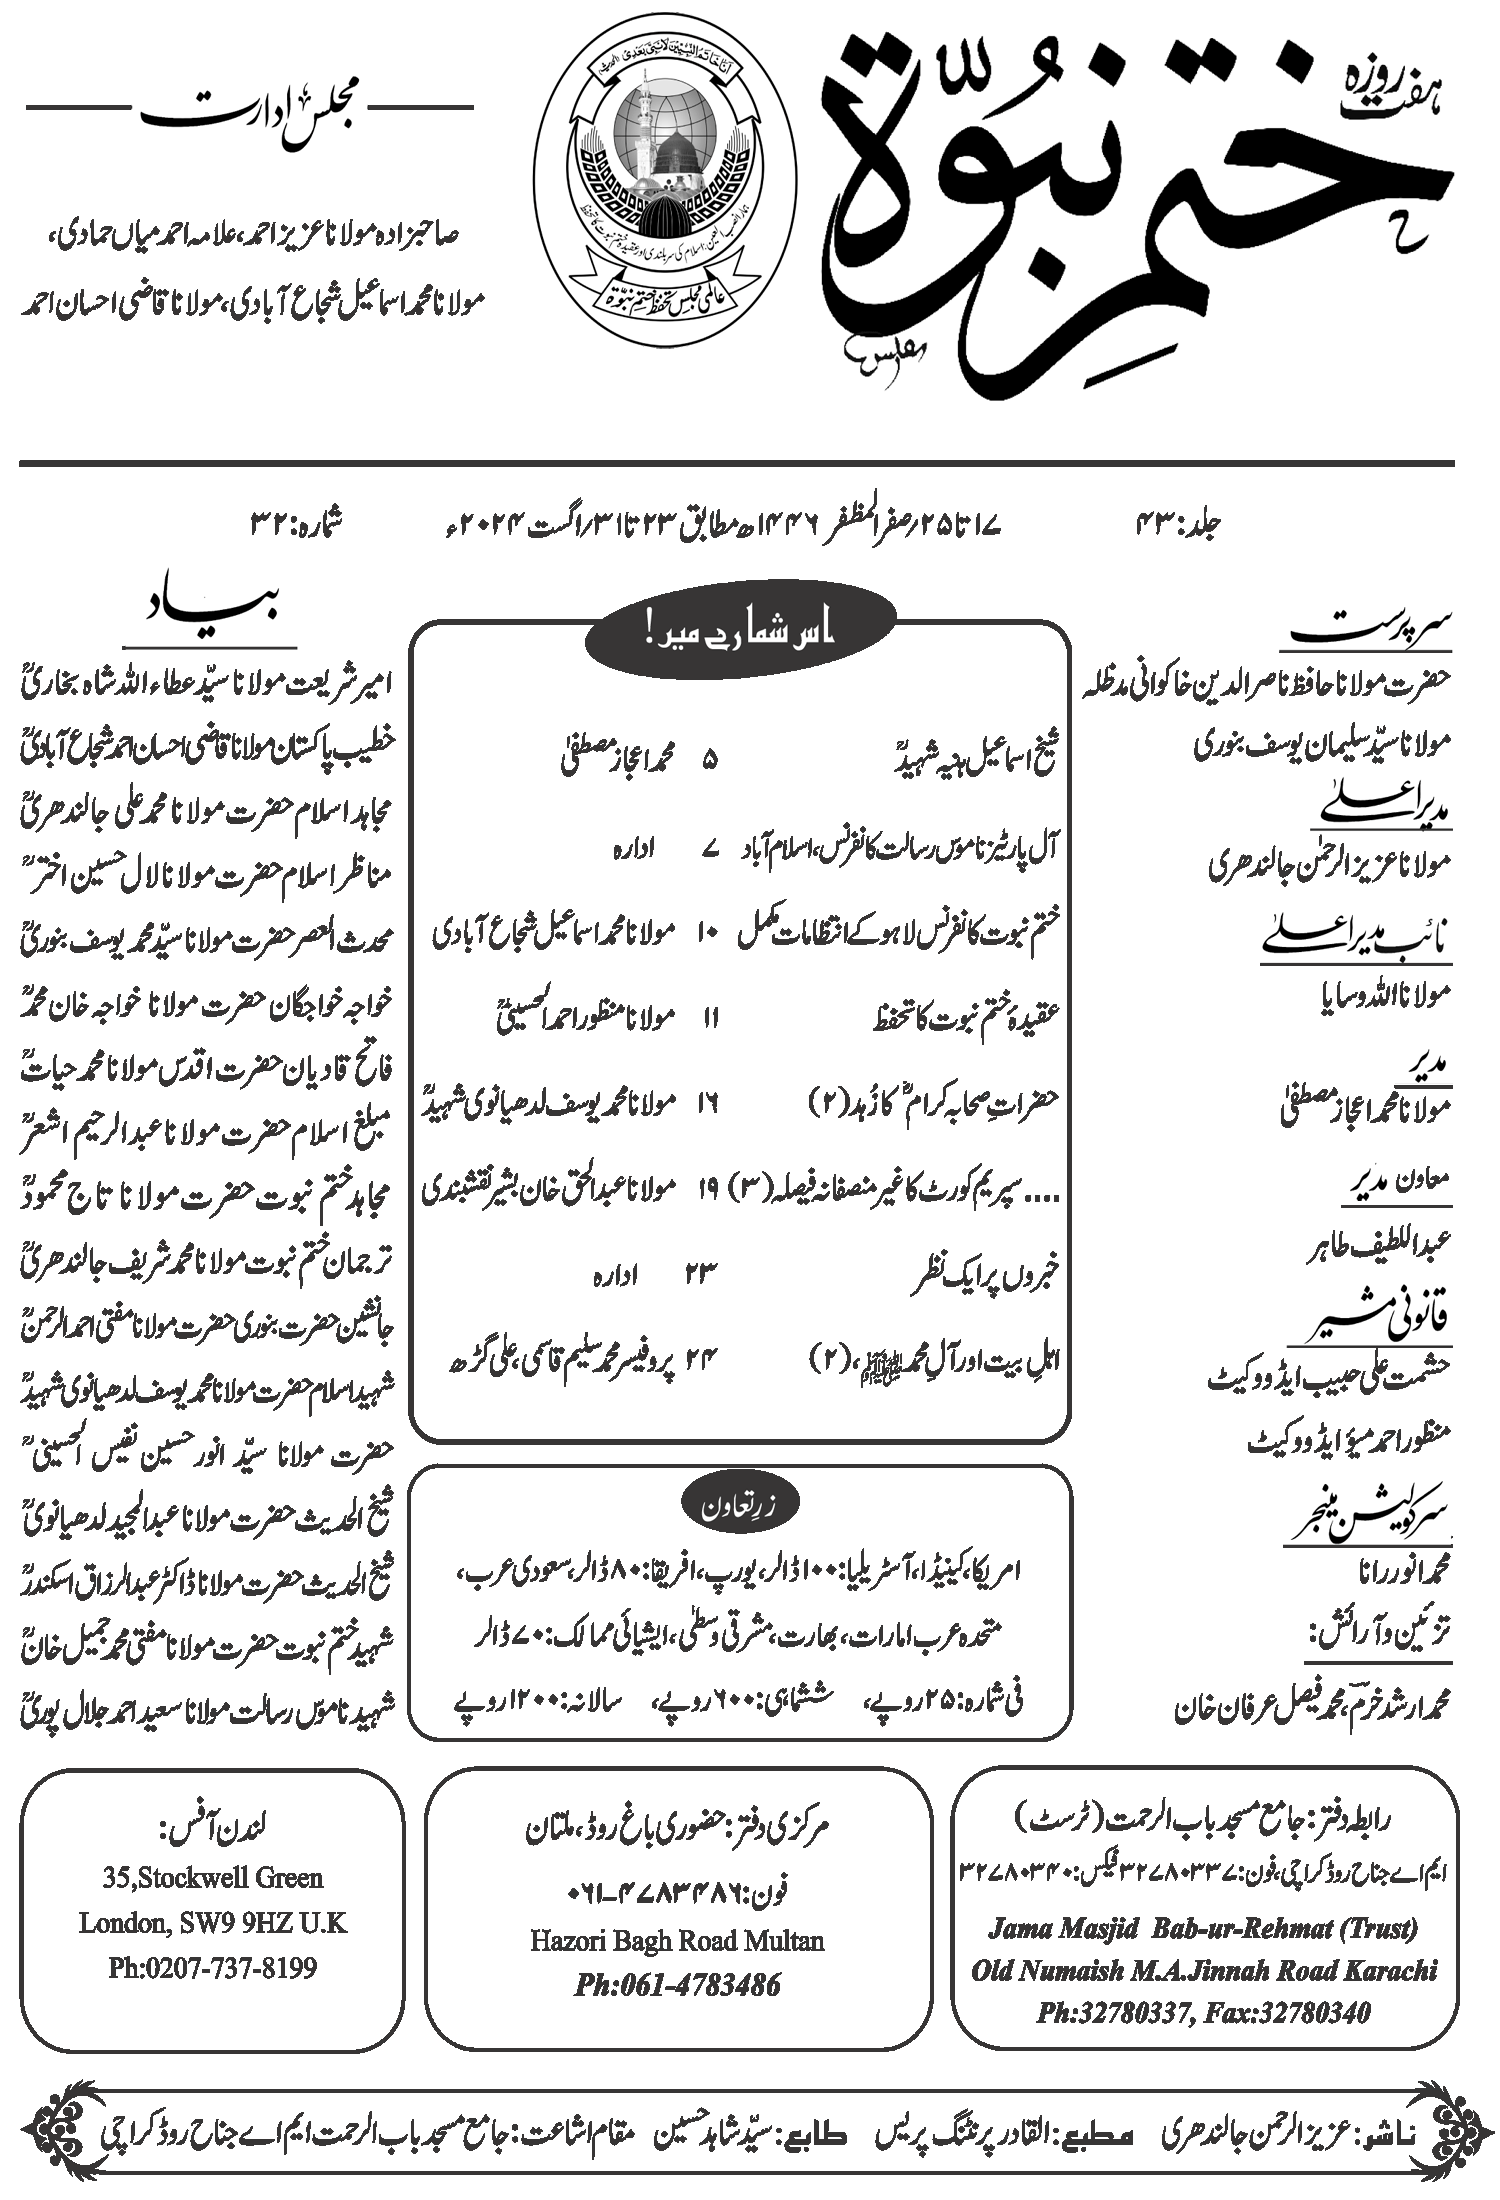 ہفت روزہ
ختم نبوّة
انا خاتم النبیین لا نبی بعدی (الحدیث)
عالمی مجلس تحفظ ختم نبوّة
مجلس ادارت
صاحبزادہ مولانا عزیز احمد، علامہ احمد میاں حمادی،
مولانا محمد اسماعیل شجاع آبادی، مولانا قاضی احسان احمد
جلد: ۴۳
۱۷ تا ۲۵؍صفر المظفر ۱۴۴۶ھ مطابق ۲۳ تا ۳۱؍اگست ۲۰۲۴ء
شمارہ: ۳۲
سرپرست
حضرت مولانا حافظ ناصر الدین خاکوانی مدظلہ
مولانا سیّد سلیمان یوسف بنوری
مدیر اعلیٰ
مولانا عزیز الرحمٰن جالندھری
نائب مدیر اعلیٰ
مولانا اللہ وسایا
مدیر
مولانا محمد اعجاز مصطفیٰ
معاون مدیر
عبداللطیف طاہر
قانونی مشیر
حشمت علی حبیب ایڈووکیٹ
منظور احمد میؤ ایڈووکیٹ
سرکولیشن مینجر
محمد انور رانا
تزئین و آرائش:
محمد ارشد خرم، محمد فیصل عرفان خان
اس شمارے میں!
شیخ اسماعیل ہنیہ شہیدؒ ۵ محمد اعجاز مصطفیٰ
آل پارٹیز ناموس رسالت کانفرنس، اسلام آباد ۷ ادارہ
ختم نبوت کانفرنس لاہو کے انتظامات مکمل ۱۰ مولانا محمد اسماعیل شجاع آبادی
عقیدۂ ختم نبوت کا تحفظ ۱۱ مولانا منظور احمد الحسینیؒ
حضراتِ صحابہ کرامؓ کا زُہد (۲) ۱۶ مولانا محمد یوسف لدھیانوی شہیدؒ
.... سپریم کورٹ کا غیر منصفانہ فیصلہ (۳) ۱۹ مولانا عبدالحق خان بشیر نقشبندی
خبروں پر ایک نظر ۲۳ ادارہ
اہلِ بیت اور آلِ محمد ﷺ، (۲) ۲۴ پروفیسر محمد سلیم قاسمی، علی گڑھ
زرِتعاون
امریکا، کینیڈا، آسٹریلیا: ۱۰۰ ڈالر، یورپ، افریقا: ۸۰ ڈالر، سعودی عرب،
متحدہ عرب امارات، بھارت، مشرقی وسطٰی، ایشیائی ممالک: ۷۰ ڈالر
فی شمارہ: ۲۵ روپے، ششماہی: ۶۰۰ روپے، سالانہ: ۱۲۰۰ روپے
بیاد
امیر شریعت مولانا سیّد عطاء اللہ شاہ بخاریؒ
خطیب پاکستان مولانا قاضی احسان احمد شجاع آبادیؒ
مجاہد اسلام حضرت مولانا محمد علی جالندھریؒ
مناظر اسلام حضرت مولانا لال حسین اخترؒ
محدث العصر حضرت مولانا سیّد محمد یوسف بنوریؒ
خواجہ خواجگان حضرت مولانا خواجہ خان محمدؒ
فاتح قادیان حضرت اقدس مولانا محمد حیاتؒ
مبلغ اسلام حضرت مولانا عبدالرحیم اشعرؒ
مجاہد ختم نبوت حضرت مولانا تاج محمودؒ
ترجمان ختم نبوت مولانا محمد شریف جالندھریؒ
جانشین حضرت بنوری حضرت مولانا مفتی احمد الرحمنؒ
شہید اسلام حضرت مولانا محمد یوسف لدھیانوی شہیدؒ
حضرت مولانا سیّد انور حسین نفیس الحسینیؒ
شیخ الحدیث حضرت مولانا عبدالمجید لدھیانویؒ
شیخ الحدیث حضرت مولانا ڈاکٹر عبدالرزاق اسکندرؒ
شہید ختم نبوت حضرت مولانا مفتی محمد جمیل خانؒ
شہید ناموس رسالت مولانا سعید احمد جلال پوریؒ
رابطہ دفتر: جامع مسجد باب الرحمت (ٹرسٹ)
ایم اے جناح روڈ کراچی، فون: ۳۲۷۸۰۳۳۷ فیکس: ۳۲۷۸۰۳۴۰
Jama Masjid Bab-ur-Rehmat (Trust)
Old Numaish M.A.Jinnah Road Karachi
Ph:32780337, Fax:32780340
مرکزی دفتر: حضوری باغ روڈ، ملتان
فون: ۰۶۱-۴۷۸۳۴۸۶
Hazori Bagh Road Multan
Ph:061-4783486
لندن آفس:
35,Stockwell Green
London, SW9 9HZ U.K
Ph:0207-737-8199
ناشر: عزیز الرحمن جالندھری مطبع: القادر پرنٹنگ پریس طابع: سیّد شاہد حسین مقام اشاعت: جامع مسجد باب الرحمت ایم اے جناح روڈ کراچی